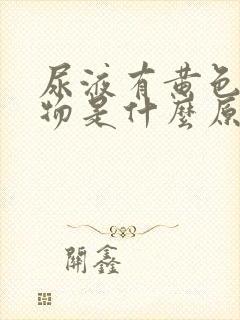 尿液有黄色
物是什麼原
開鑫